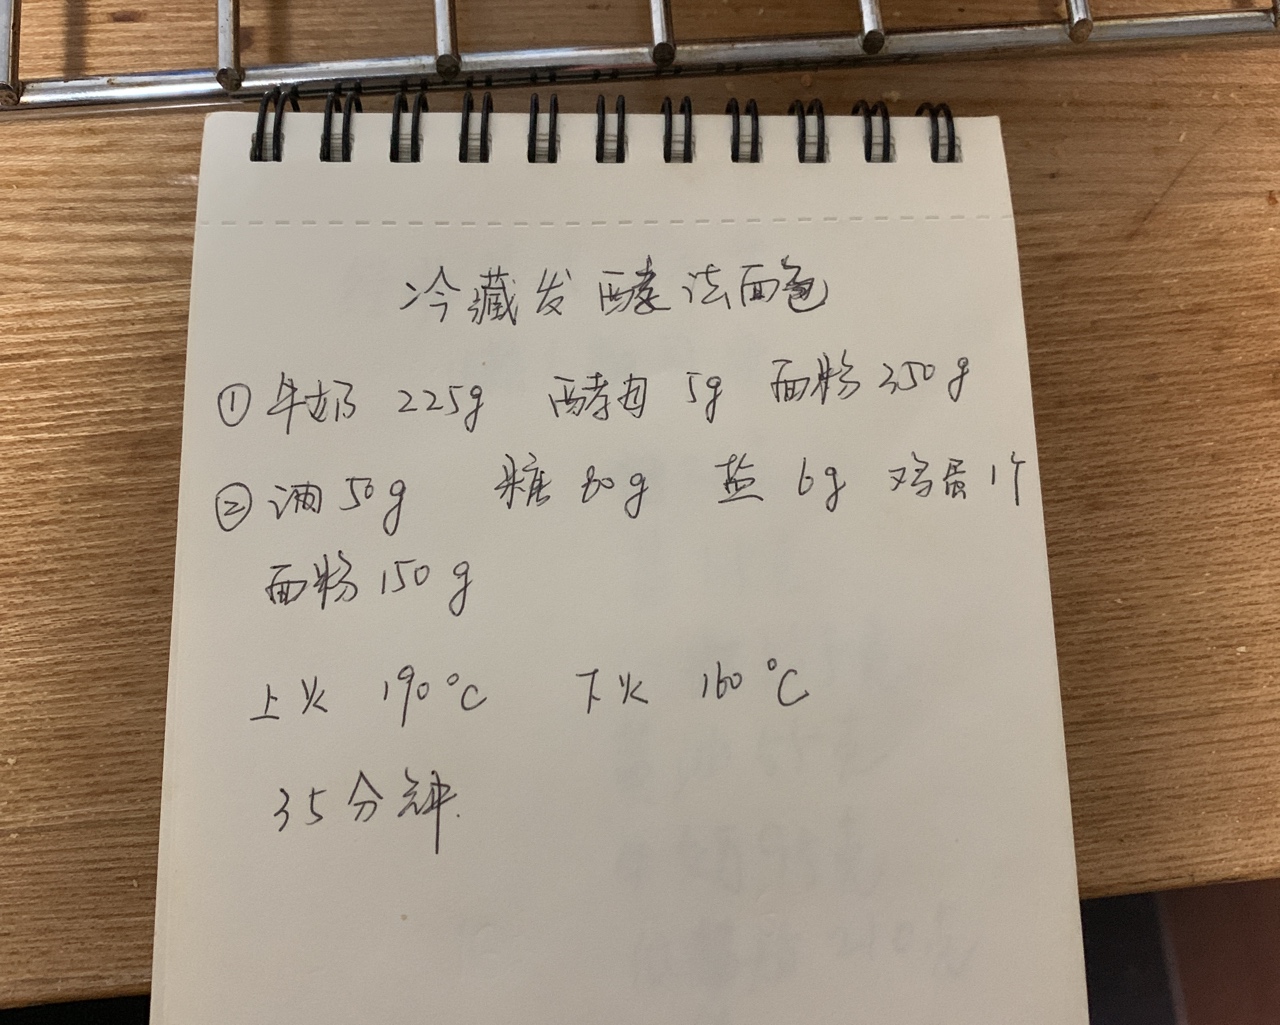 冷藏发酵法面包
① 牛奶 225g 酵母 5g 面粉 350g
② 油 50g 糖 80g 盐 6g 鸡蛋 1个
面粉 150g
上火 190℃ 下火 160℃
35分钟.